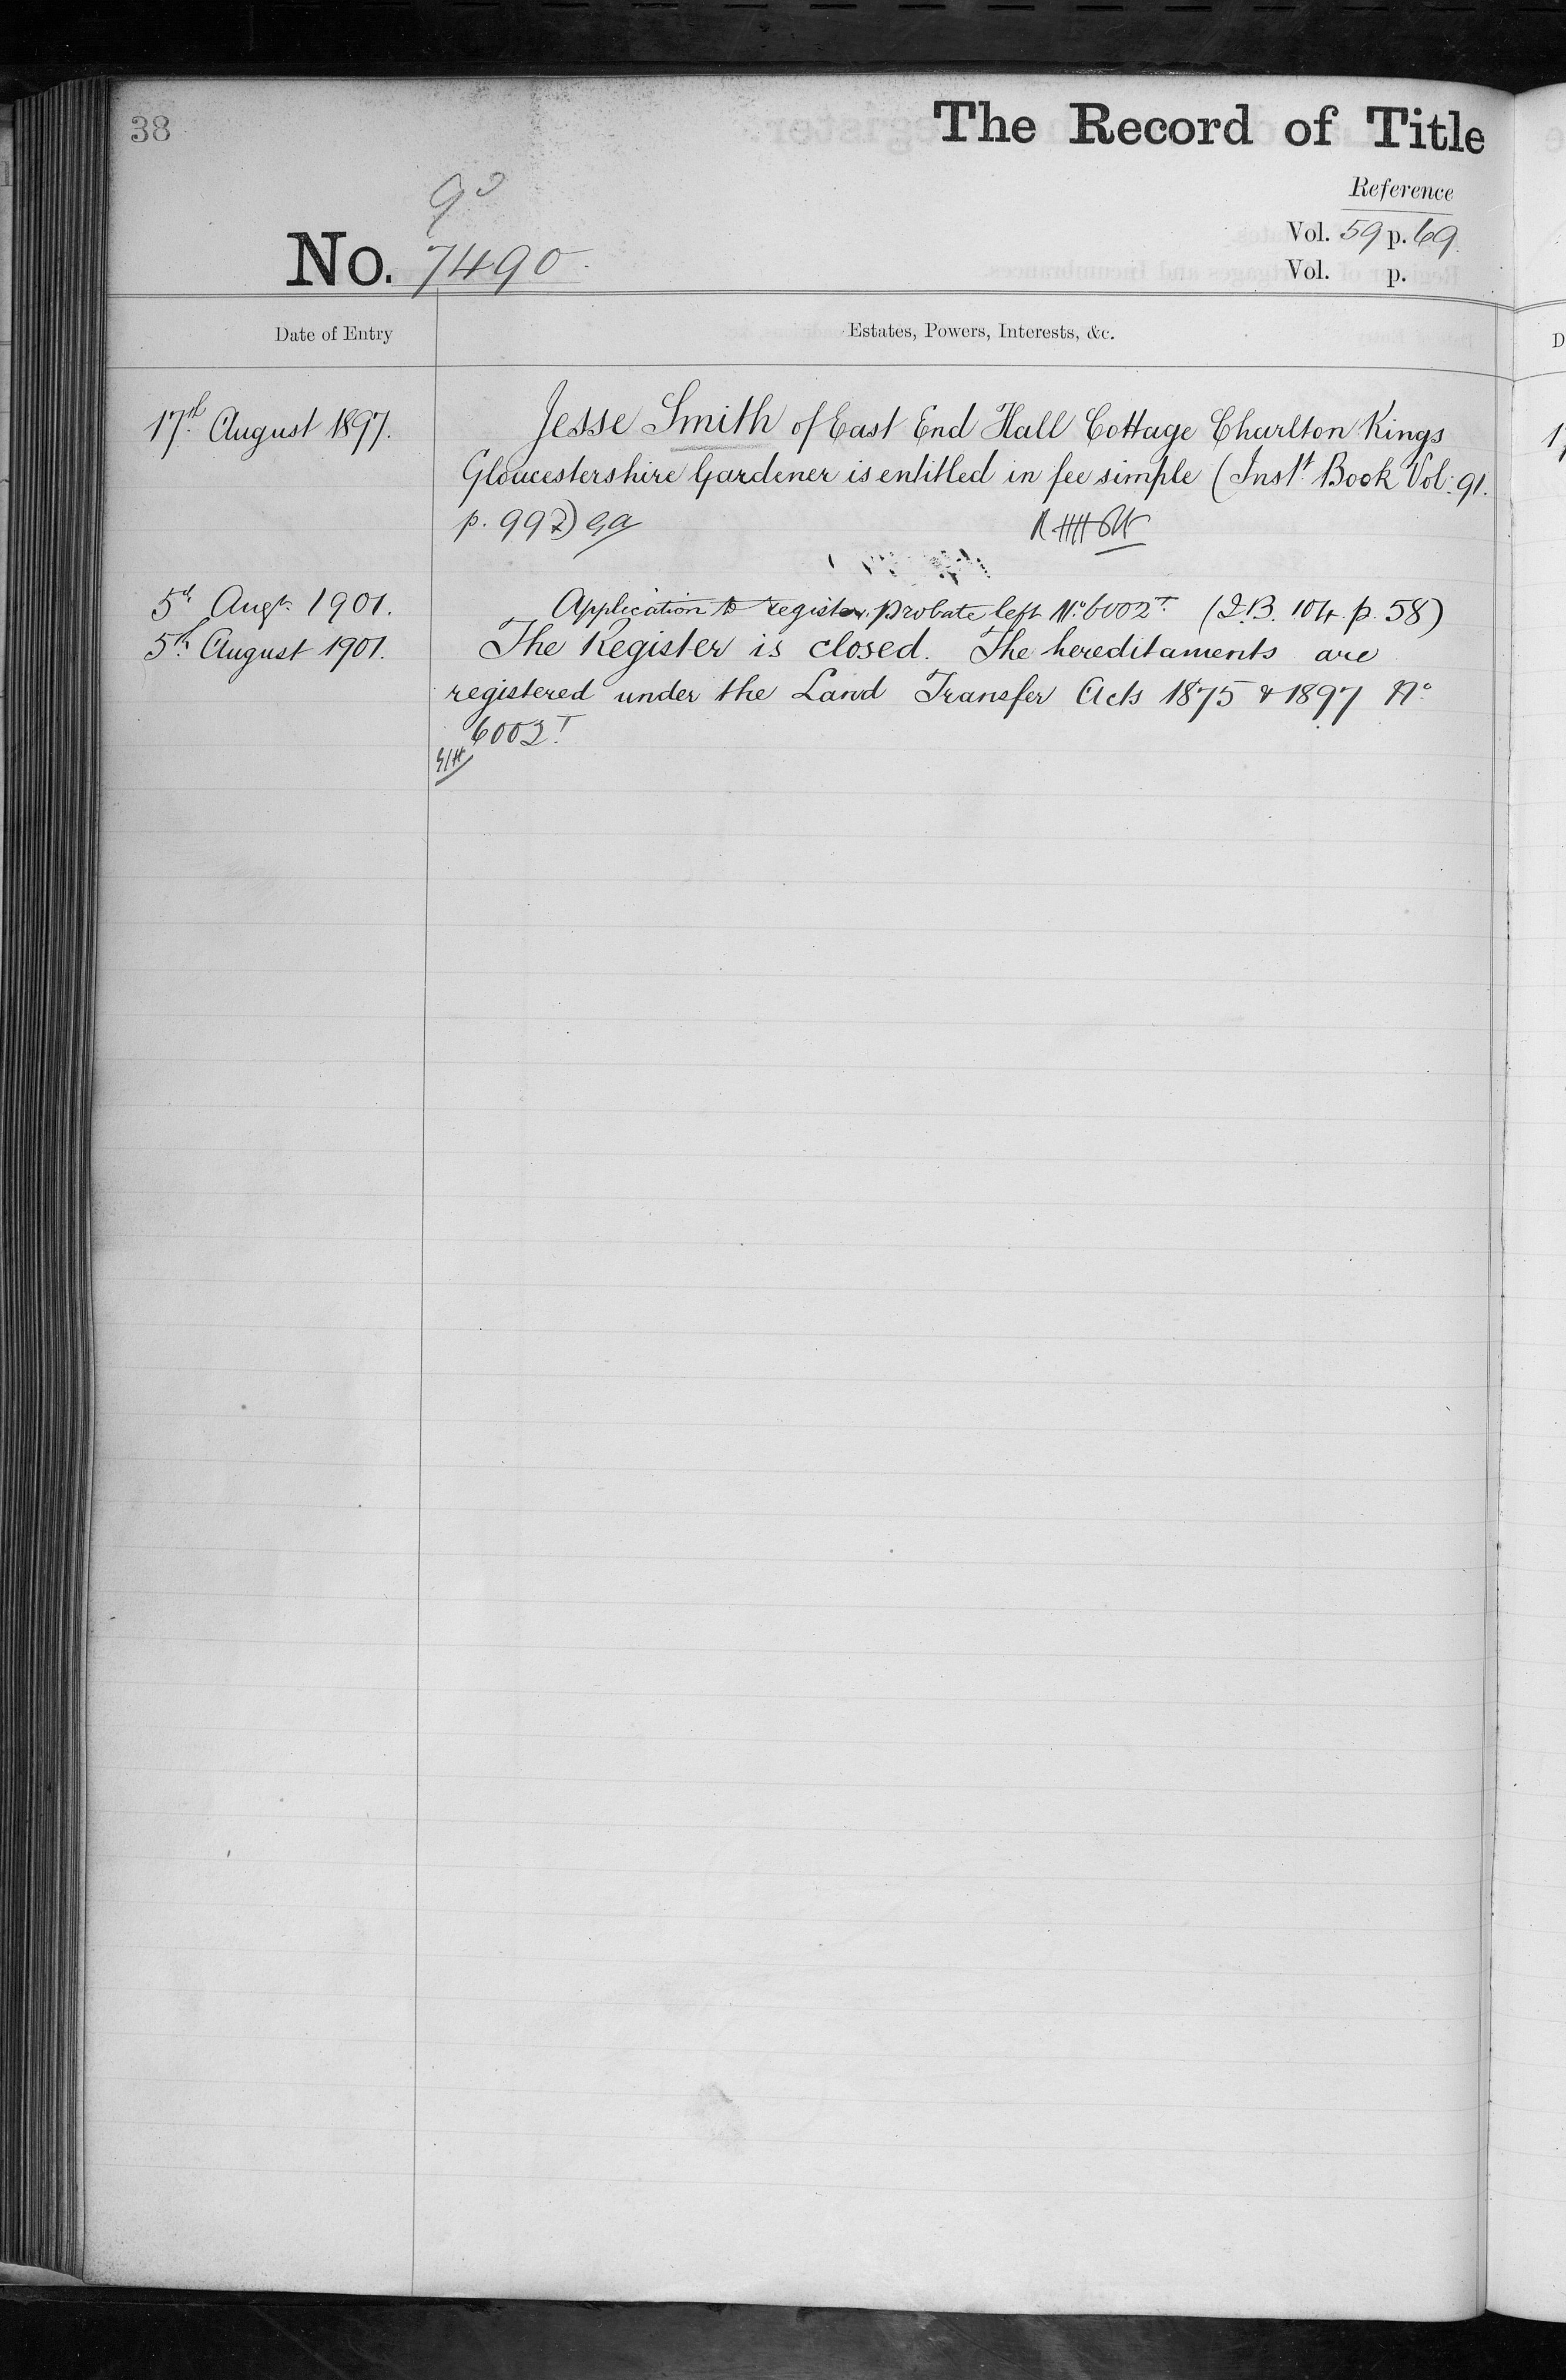 38
The Record of Title
Reference
No. 7490
Vol. 59 p. 69
Vol. p.
Date of Entry
Estates, Powers, Interests, &c.
17th August 1897.
Jesse Smith of East End Hall Cottage Charlton Kings
Gloucestershire Gardener is entitled in fee simple (Inst. Book Vol: 91.
p. 992)
5th Augt. 1901.
Application to register probate left No. 6002T. (I.B. 104. p. 58)
5th August 1901.
The Register is closed. The hereditaments are
registered under the Land Transfer Acts 1875 & 1897 No.
6002T